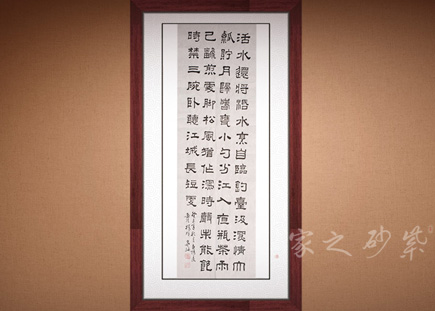 活水還將活火烹自臨釣臺汲深清大
瓢貯月歸春甕小勺分江入夜瓶茶雨
已翻煎處腳松風猶作瀉時聲能飽
時禁三碗臥聽江城長短更
紫砂之家